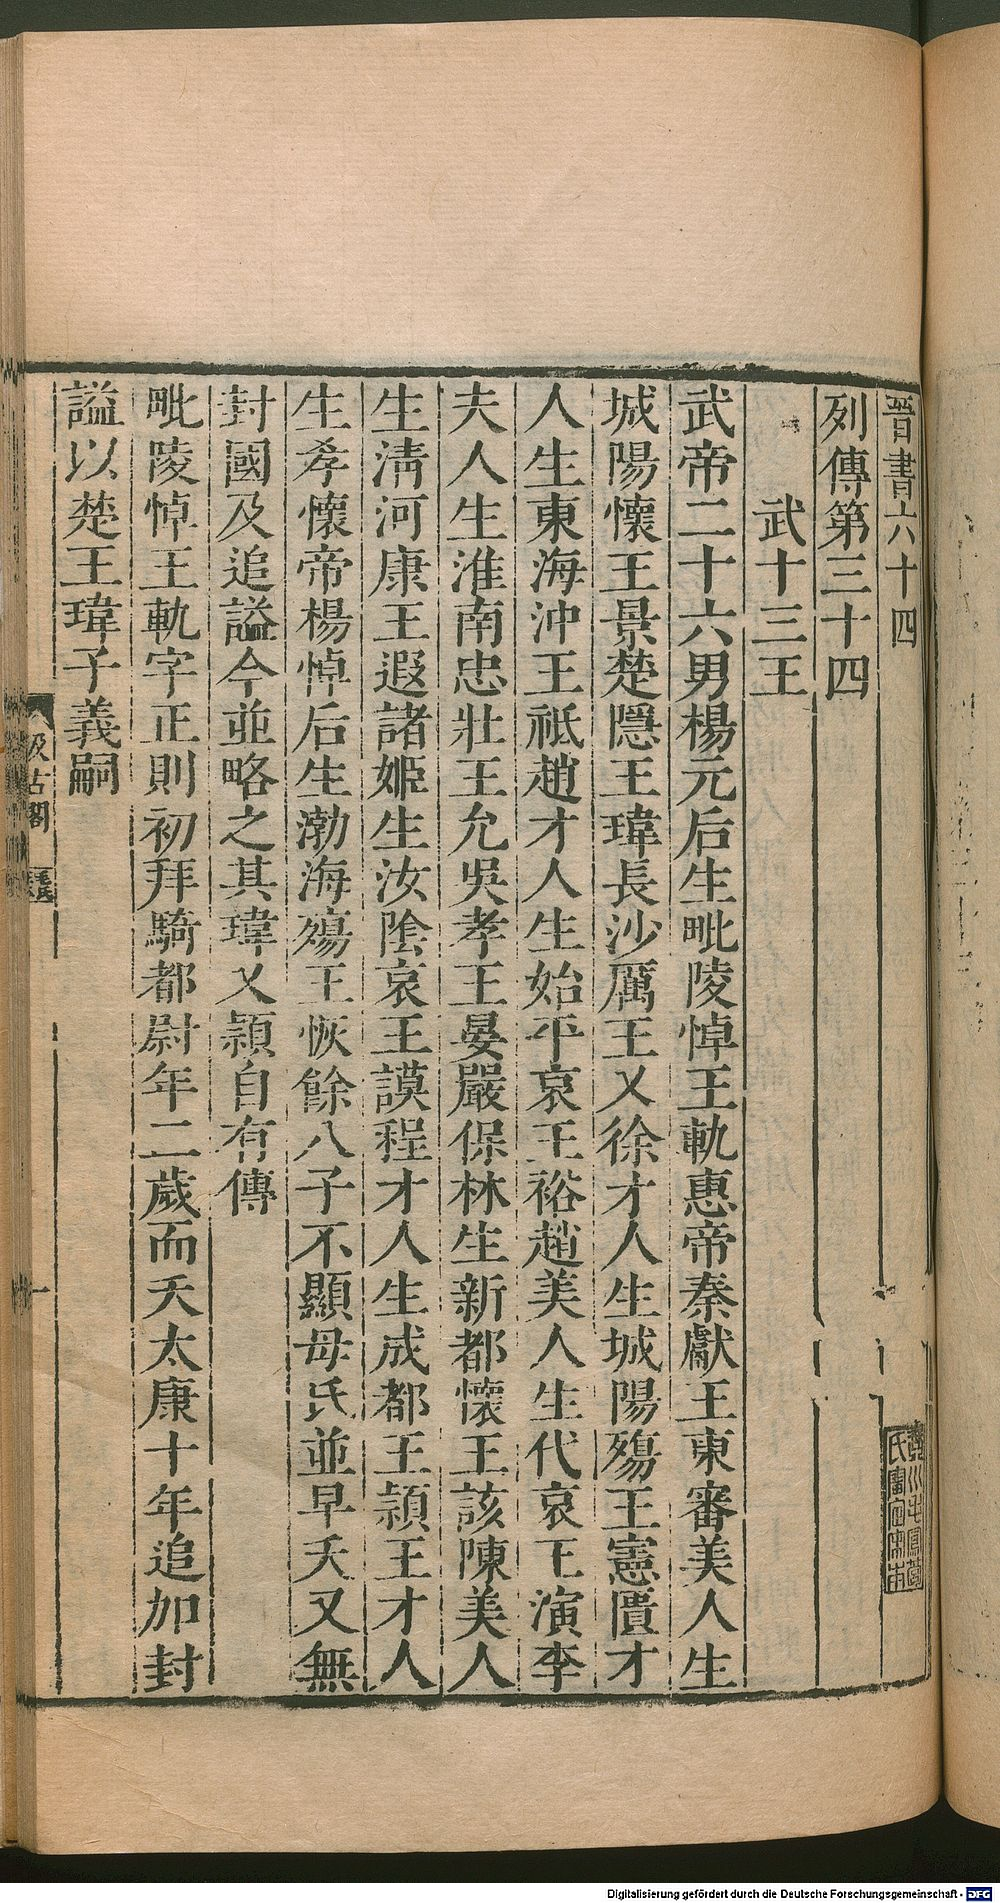 晉書六十四
列傳第三十四
武十三王
武帝二十六男楊元后生毗陵悼王軌惠帝秦獻王東審美人生
城陽懷王景楚隱王瑋長沙厲王乂徐才人生城陽殤王憲匱才
人生東海沖王祗趙才人生始平哀王裕趙美人生代哀王演李
夫人生淮南忠壯王允吳孝王晏嚴保林生新都懷王該陳美人
生淸河康王遐諸姬生汝陰哀王謨程才人生成都王穎王才人
生孝懷帝楊悼后生渤海殤王恢餘八子不顯母氏並早夭又無
封國及追謚今並略之其瑋乂穎自有傳
毗陵悼王軌字正則初拜騎都尉年二歲而夭太康十年追加封
謚以楚王瑋子義嗣
汲古閣
毛氏
一
Digitalisierung gefördert durch die Deutsche Forschungsgemeinschaft - DFG